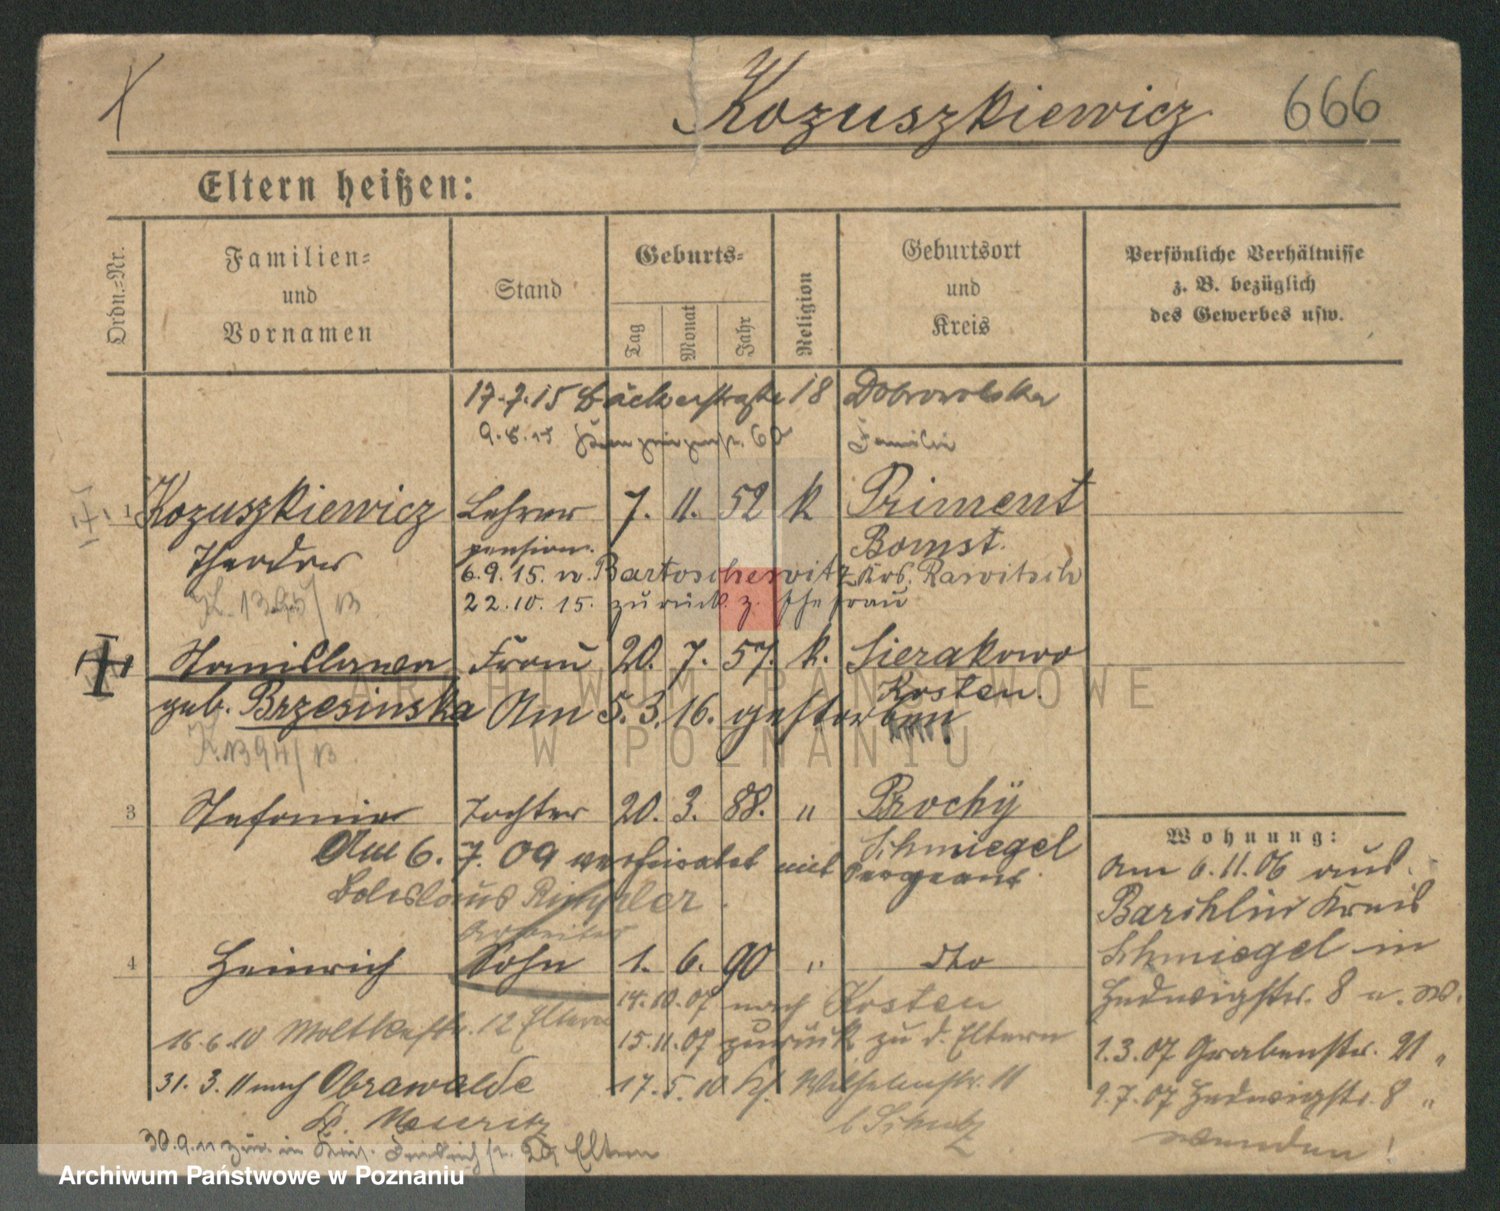 Kozuszkiewicz 666
Eltern heißen:
Ordn.-Nr.
Familien- und Vornamen
Stand
Geburts-
Tag Monat Jahr
Religion
Geburtsort und Kreis
Persönliche Verhältnisse
z. B. bezüglich
des Gewerbes usw.
17.7.15 Bäckerstraße 18 Dobrowolska
Familie
1 Kozuszkiewicz Lehrer 7. 11. 52 k Priment
Theodor pension. Bomst.
6.9.15. n. Bartoschewitz Krs. Rawitsch
22.10.15. zurück z. Ehefrau
Stanislawa Frau 20. 7. 57. k. Sierakowo
Kosten.
geb. Brzesinska Am 5.3.16. gestorben
3 Stefania Tochter 20. 3. 88. " Prochy
Schmiegel
Am 6. 7. 09 verheiratet mit Sergeant
Boleslaus
Arbeiter
4 Heinrich Sohn 1. 6. 90 " dto
14.10.07 nach Kosten
16.6.10 Moltkestr. 12 Eltern
15.11.07 zurück zu d. Eltern
31. 3. 11 nach Obrawalde
Kr. Meseritz
17.5.10 Wilhelmstr. 11
b Schulz
Eltern
Wohnung:
Am 6.11.06 aus
Barchlin Kreis
Schmiegel in
Hedwigstr. 8 u. W.
1.3.07 Grabenstr. 21 "
9.7.07 Hedwigstr. 8 "
wenden!
ARCHIWUM PAŃSTWOWE
W POZNANIU
Archiwum Państwowe w Poznaniu